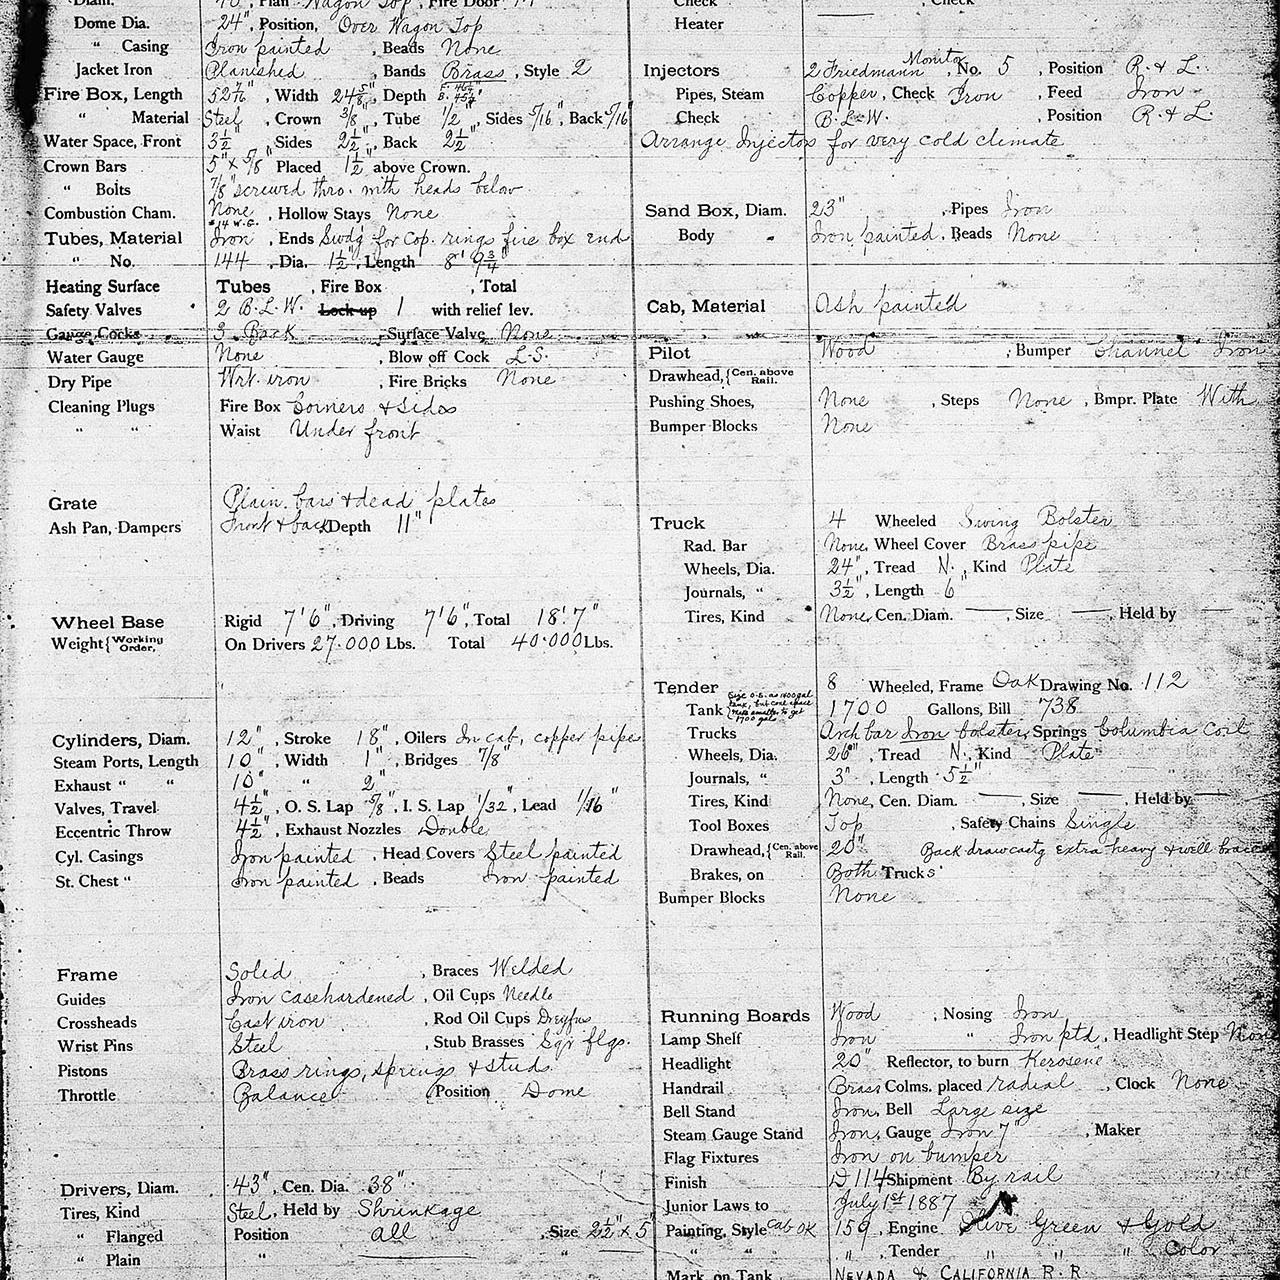 Diam. , Plan Wagon Top, Fire Door
Dome Dia. 24", Position, Over Wagon Top
" Casing Iron painted , Beads None
Jacket Iron Planished , Bands Brass , Style 2
Fire Box, Length 52 7/16", Width 24 5/8", Depth
" Material Steel , Crown 3/8 , Tube 1/2 , Sides 5/16", Back 5/16"
Water Space, Front 3½" , Sides 2½", Back 2½"
Crown Bars 5" x 5/8" Placed 1½" above Crown.
" Bolts 7/8" screwed thro. with heads below
Combustion Cham. None , Hollow Stays None
#14 W.G.
Tubes, Material Iron , Ends Swdg for Cop. rings fire box end
" No. 144 , Dia. 1½", Length 8' 9¾"
Heating Surface Tubes , Fire Box , Total
Safety Valves 2 B.L.W. Lock-up 1 with relief lev.
Gauge Cocks 3 Back , Surface Valve None
Water Gauge None , Blow off Cock L.S.
Dry Pipe Wrt. iron , Fire Bricks None
Cleaning Plugs Fire Box Corners & Sides
" " Waist Under front
Grate Plain bars & dead plates
Ash Pan, Dampers Front & back Depth 11"
Wheel Base Rigid 7' 6", Driving 7' 6", Total 18' 7"
Weight { Working Order, On Drivers 27.000 Lbs. Total 40.000 Lbs.
Cylinders, Diam. 12" , Stroke 18" , Oilers In cab, copper pipe
Steam Ports, Length 10" , Width 1" , Bridges 7/8"
Exhaust " " 10" " 2"
Valves, Travel 4½", O. S. Lap 5/8", I. S. Lap 1/32", Lead 1/16"
Eccentric Throw 4½", Exhaust Nozzles Double
Cyl. Casings Iron painted , Head Covers Steel painted
St. Chest " Iron painted , Beads Iron painted
Frame Solid , Braces Welded
Guides Iron casehardened , Oil Cups Needle
Crossheads Cast iron , Rod Oil Cups Dreyfus
Wrist Pins Steel , Stub Brasses Sqr flgs.
Pistons Brass rings, springs & studs
Throttle Balance Position Dome
Drivers, Diam. 43" , Cen. Dia. 38"
Tires, Kind Steel, Held by Shrinkage
" Flanged Position all , Size 2½" x 5"
" Plain " "
Check , Check
Heater
Injectors 2 Friedmann Monitor , No. 5 , Position R. & L.
Pipes, Steam Copper, Check Iron , Feed Iron
Check B.L.W. , Position R. & L.
Arrange Injectors for very cold climate
Sand Box, Diam. 23" , Pipes Iron
Body Iron painted, Beads None
Cab, Material Ash painted
Pilot Wood , Bumper Channel Iron
Drawhead, { Cen. above Rail.
Pushing Shoes, None , Steps None , Bmpr. Plate With
Bumper Blocks None
Truck 4 Wheeled Swing Bolster
Rad. Bar None, Wheel Cover Brass pipe
Wheels, Dia. 24", Tread N. , Kind Plate
Journals, " 3½", Length 6"
Tires, Kind None, Cen. Diam. , Size , Held by
Tender 8 Wheeled, Frame Oak Drawing No. 112
Size O.S. as 1400 gal tank, but coal space made smaller to get 1700 gal.
Tank 1700 Gallons, Bill 738
Trucks Arch bar Iron bolster, Springs Columbia Coil
Wheels, Dia. 26" , Tread N. , Kind Plate
Journals, " 3" , Length 5½"
Tires, Kind None, Cen. Diam. , Size , Held by
Tool Boxes Top , Safety Chains Single
Drawhead, { Cen. above Rail. 20" Back draw castg extra heavy & well
Brakes, on Both Trucks
Bumper Blocks None
Running Boards Wood , Nosing Iron
Lamp Shelf Iron " Iron ptd, Headlight Step None
Headlight 20" Reflector, to burn Kerosene
Handrail Brass Colms. placed radial , Clock None
Bell Stand Iron, Bell Large size
Steam Gauge Stand Iron, Gauge Iron 7" , Maker
Flag Fixtures Iron on bumper
Finish D 114 Shipment By rail
Junior Laws to July 1st 1887
Painting, Style Cab OK 159 , Engine Olive Green & Gold
" " " , Tender " " " Color
Mark, on Tank NEVADA & CALIFORNIA R.R.